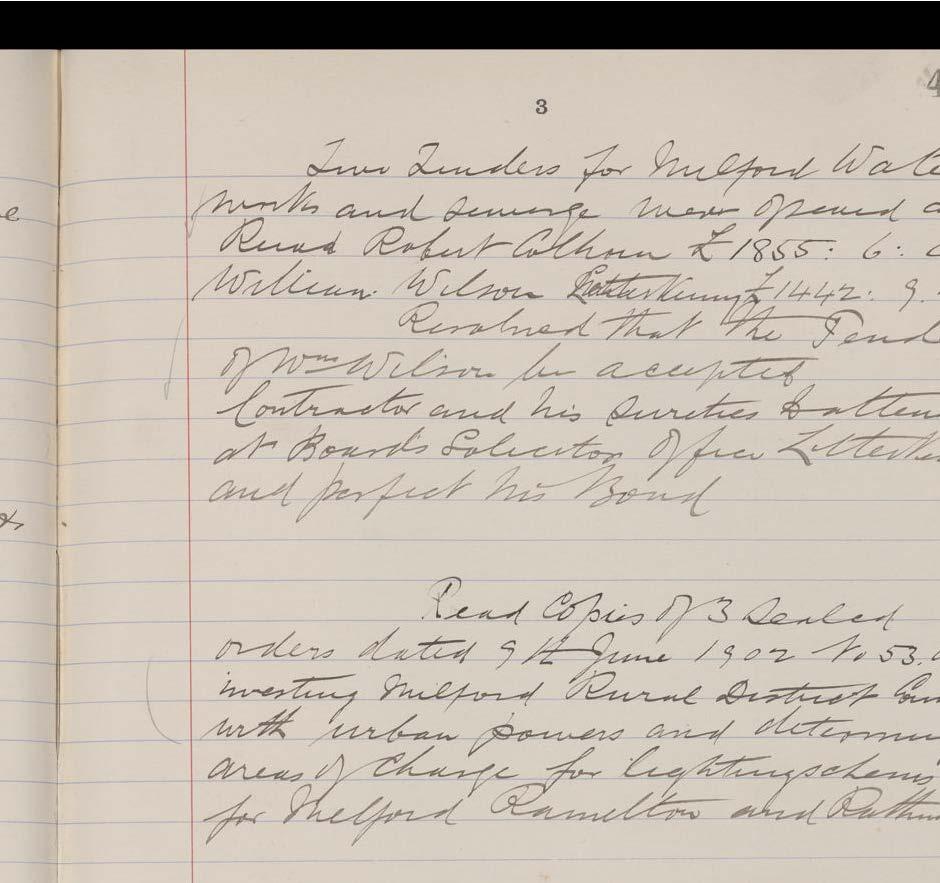 4
3
Two Tenders for Milford Wate
works and sewerge were opened a
Read Robert Colhoun £1855: 6:
William Wilson Letterkenny £1442: 9.
Resolved that the Tend
of Wm Wilson be accepted
Contractor and his sureties to atten
at Boards Solicitor Office Letterke
and perfect his Bond
Read Copies of 3 Sealed
orders dated 9th June 1902 No 53.
investing Milford Rural District Coun
with urban powers and determin
areas of Charge for lighting schems
for Milford Ramelton and Rathm